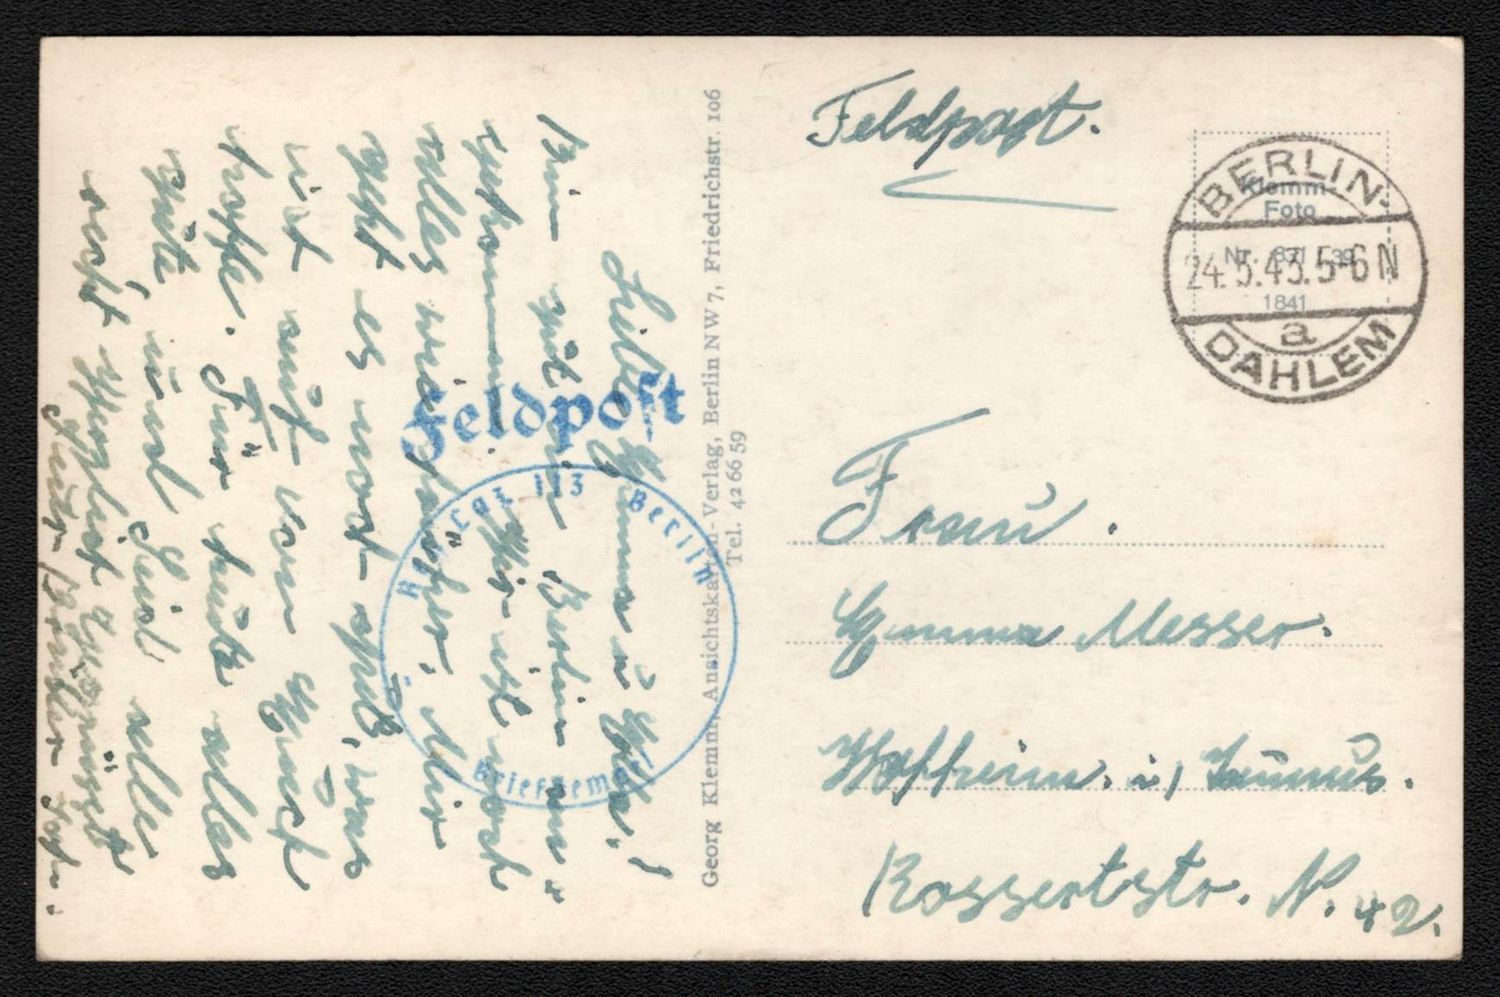 Liebe Emma u.
Bin gut in Berlin an-
gekommen. Hier ist noch
alles wie früher. Mir
geht es noch gut, was
ich auch von Euch
hoffe. Für heute alles
gute und Seid alle
recht herzlich gegrüßt
Feldpost
Res. Laz. 113 Berlin
Briefstempel
Georg Klemm, Ansichtskarten-Verlag, Berlin NW 7, Friedrichstr. 106
Tel. 42 66 59
Feldpost.
BERLIN-
Klemm-
Foto
Nr.
24.5.43.5-6 N
1841
a
DAHLEM
Frau
Emma Messer.
Hofheim. i/ Taunus.
Rossertstr. N. 42.